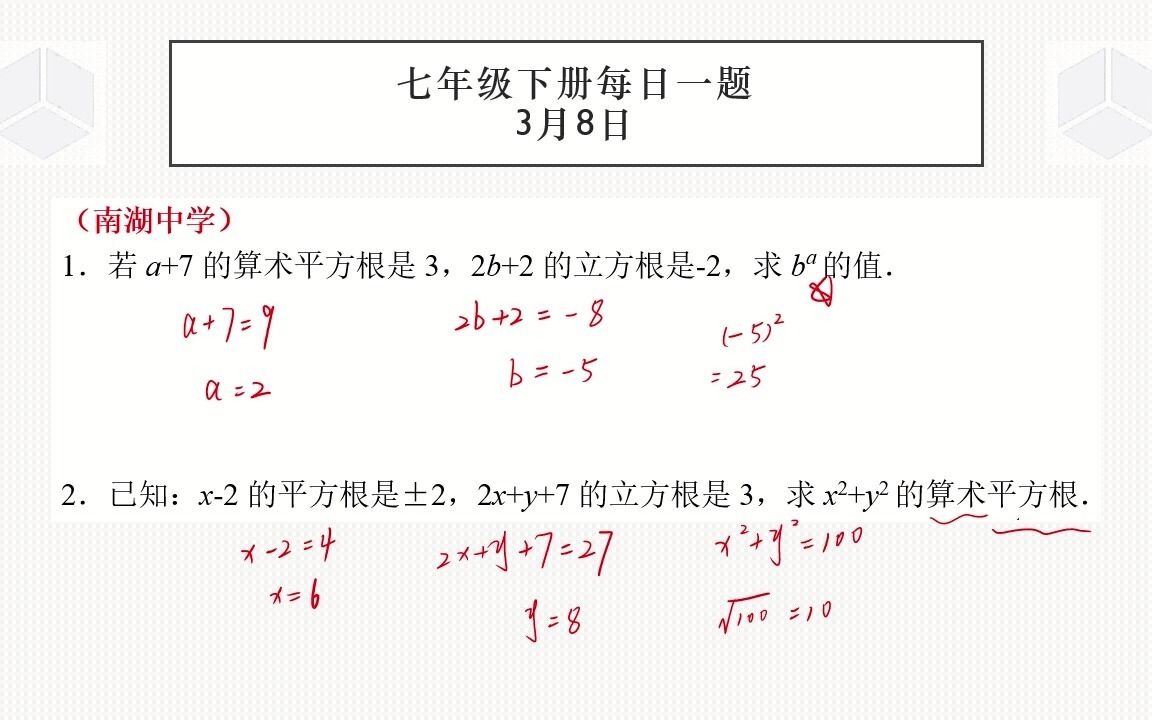 七年级下册每日一题
3月8日
（南湖中学）
1．若 a+7 的算术平方根是 3，2b+2 的立方根是-2，求 bᵃ 的值．
a+7=9 2b+2=-8 (-5)²
a=2 b=-5 =25
2．已知：x-2 的平方根是±2，2x+y+7 的立方根是 3，求 x²+y² 的算术平方根．
x-2=4 2x+y+7=27 x²+y²=100
x=6 y=8 √100=10